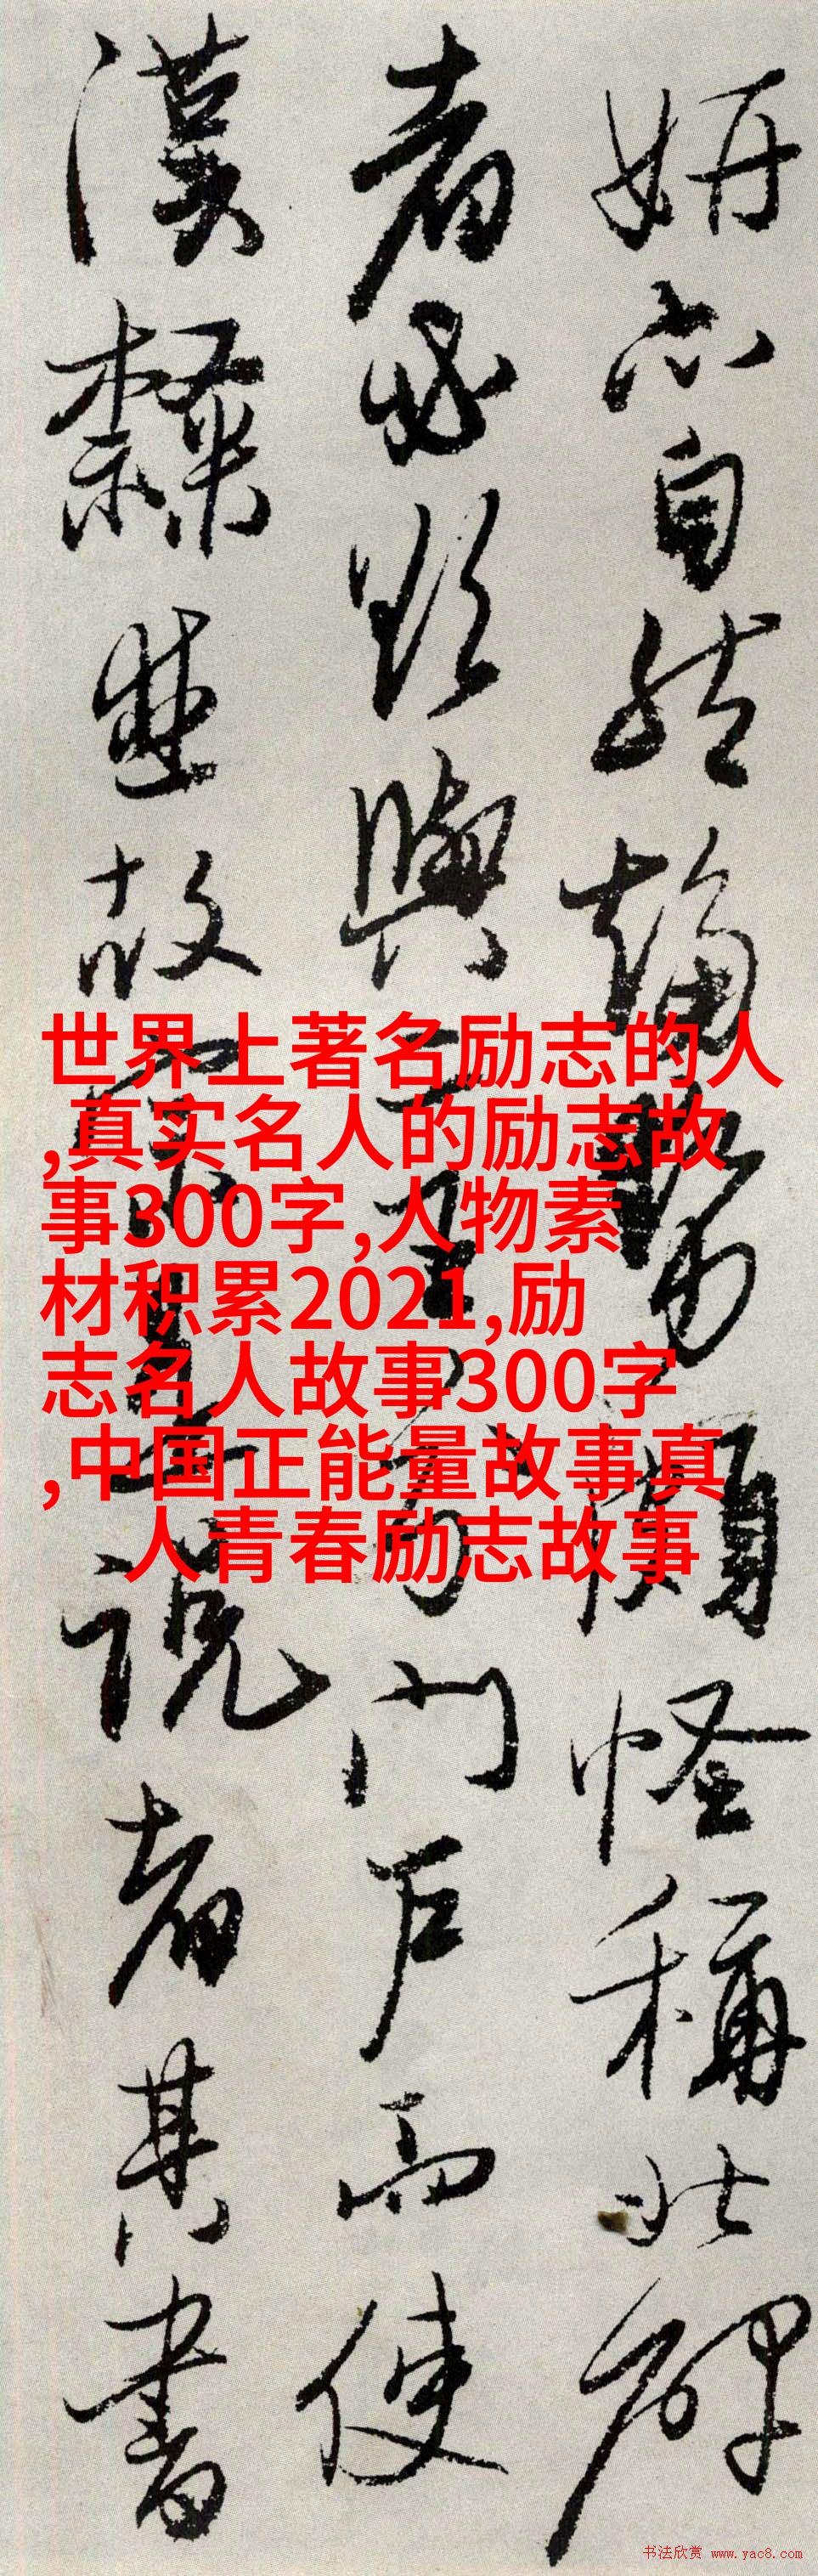 妍亦自然
頗怪稱北碑
者必欲與
門戶而使
漢隸
故
說者其書
世界上著名励志的人
,真实名人的励志故
事300字,人物素
材积累2021,励
志名人故事300字
,中国正能量故事真
人青春励志故事
书法欣赏 www.yac8.com